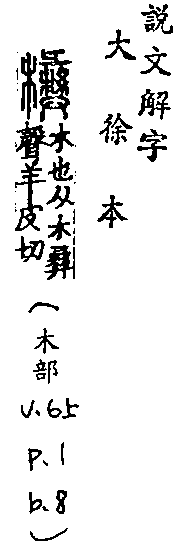 說文解字
大徐本
木也从木彝
聲羊皮切
(木部
v.65
p.1
b.8)